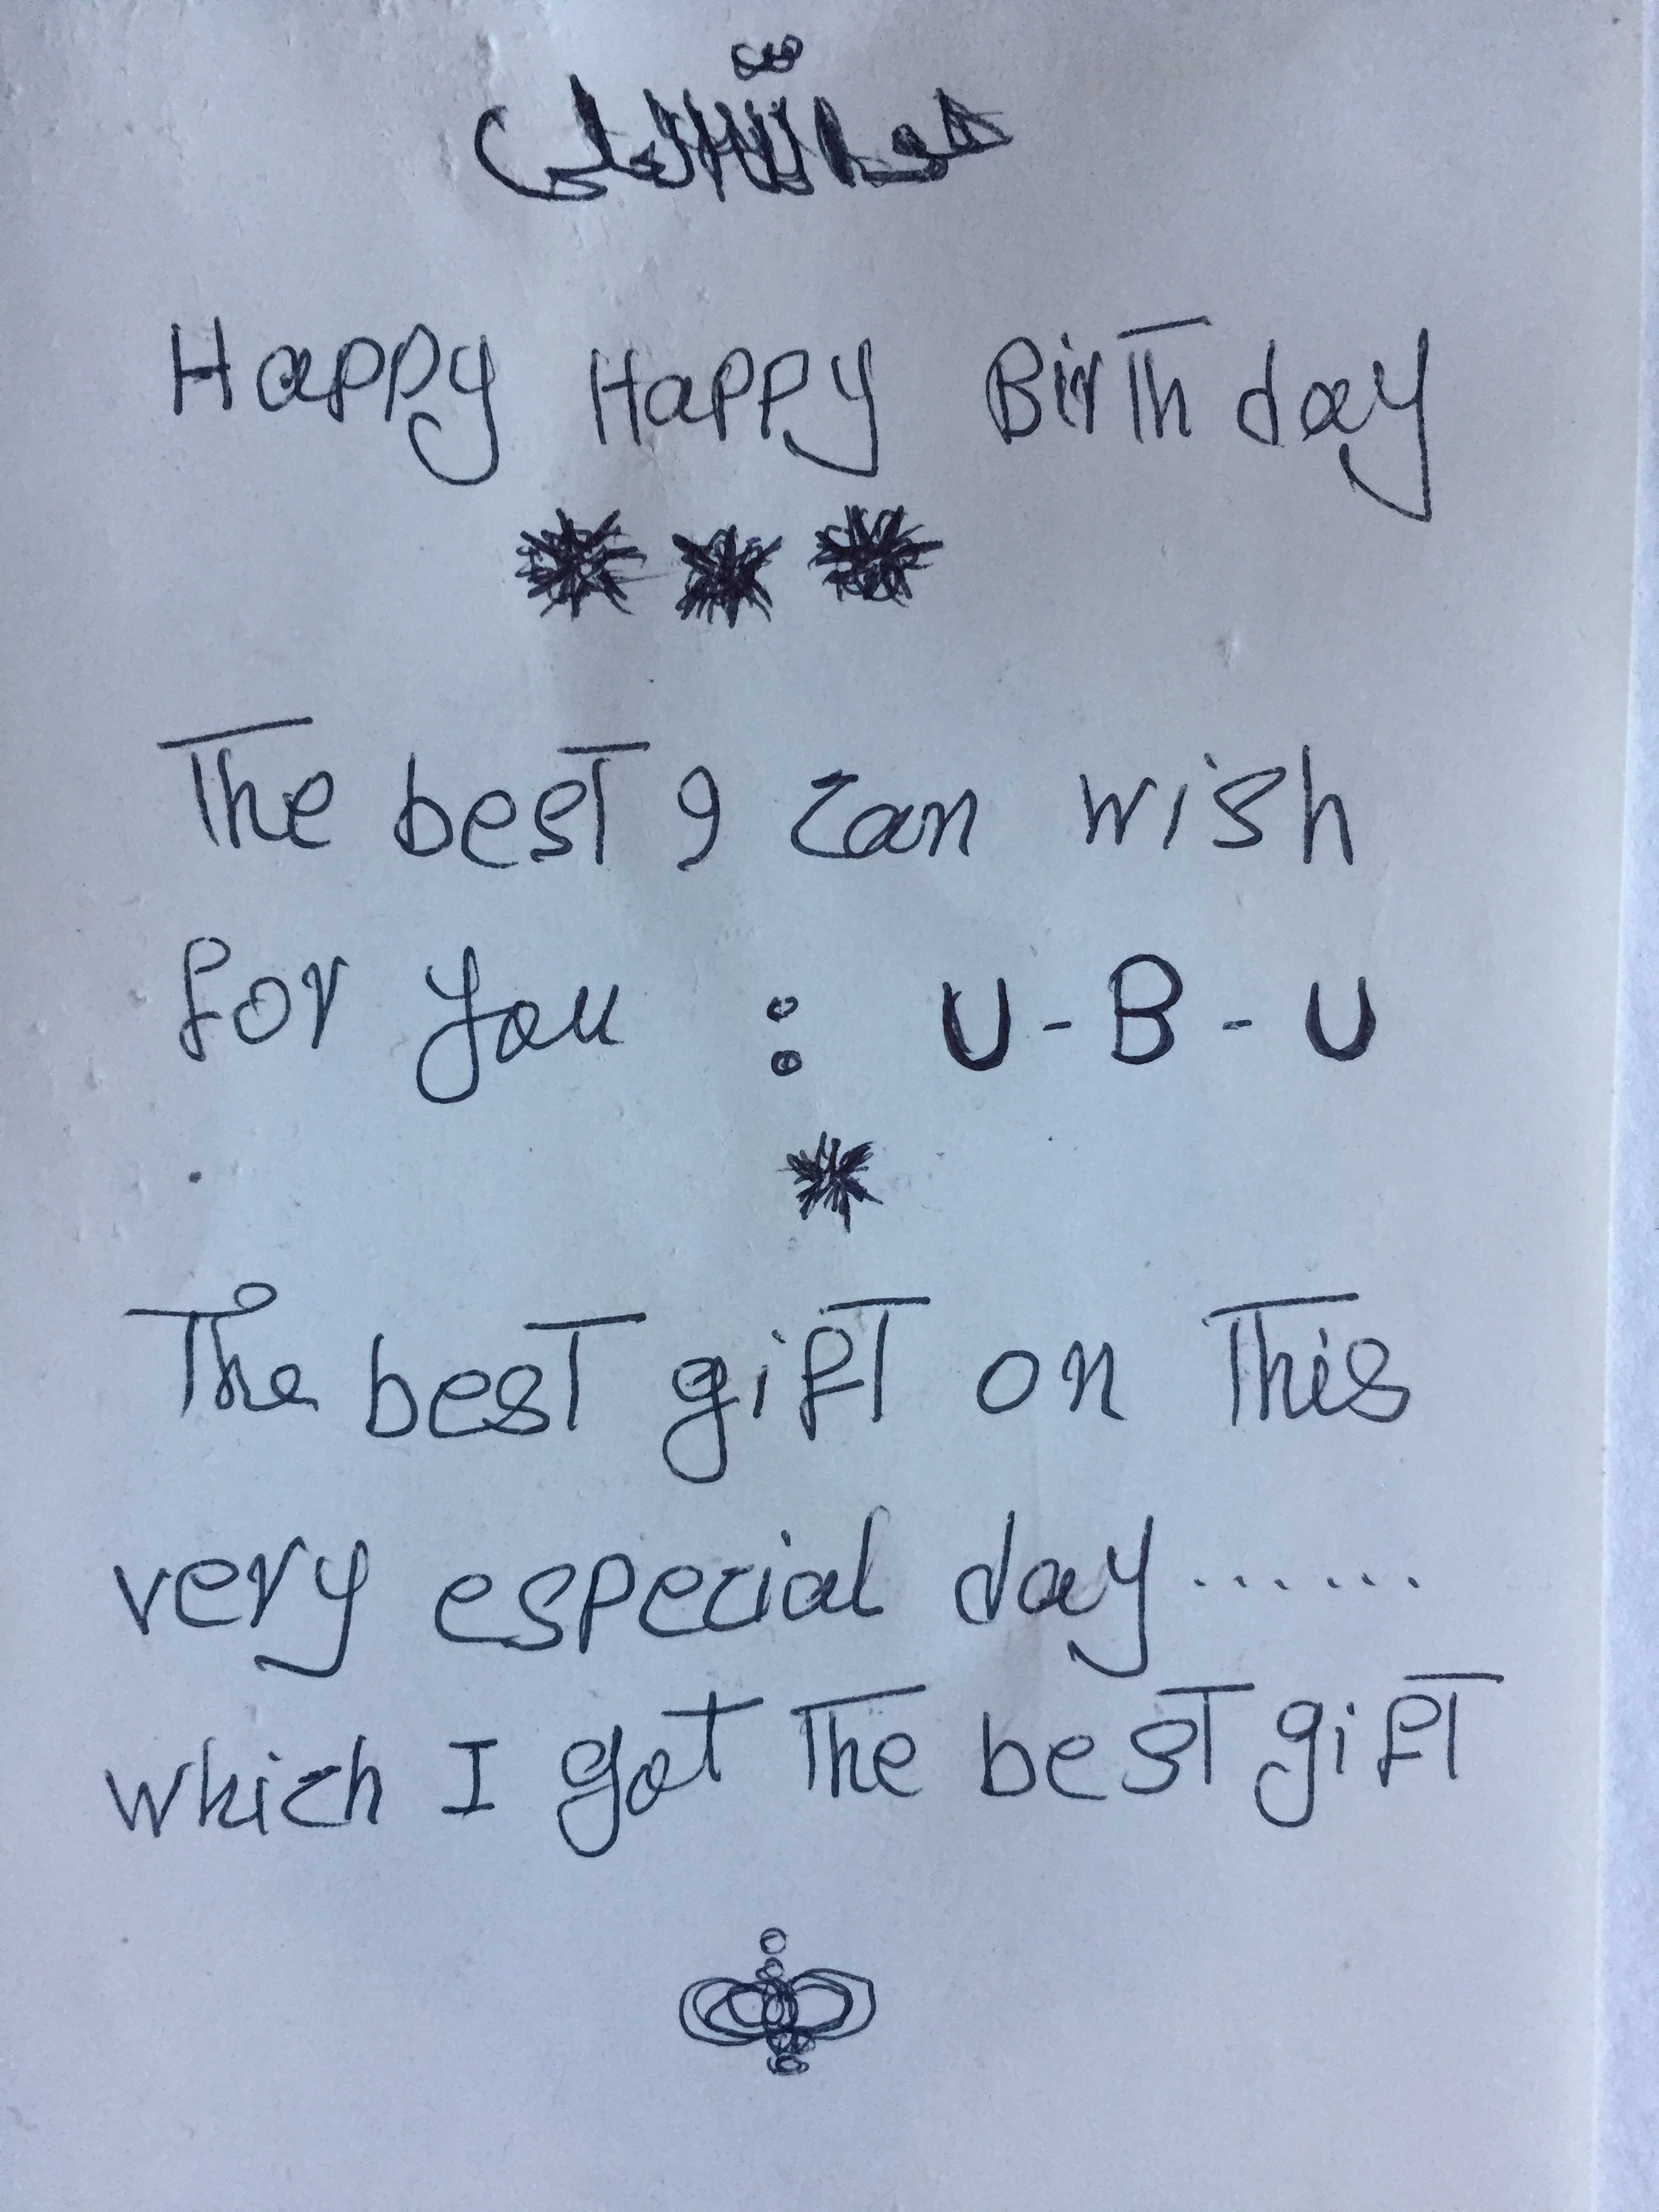 هو الله العلی
Happy Happy Birthday
The best I can wish
for you : U-B-U
The best gift on this
very especial day.......
which I got the best gift